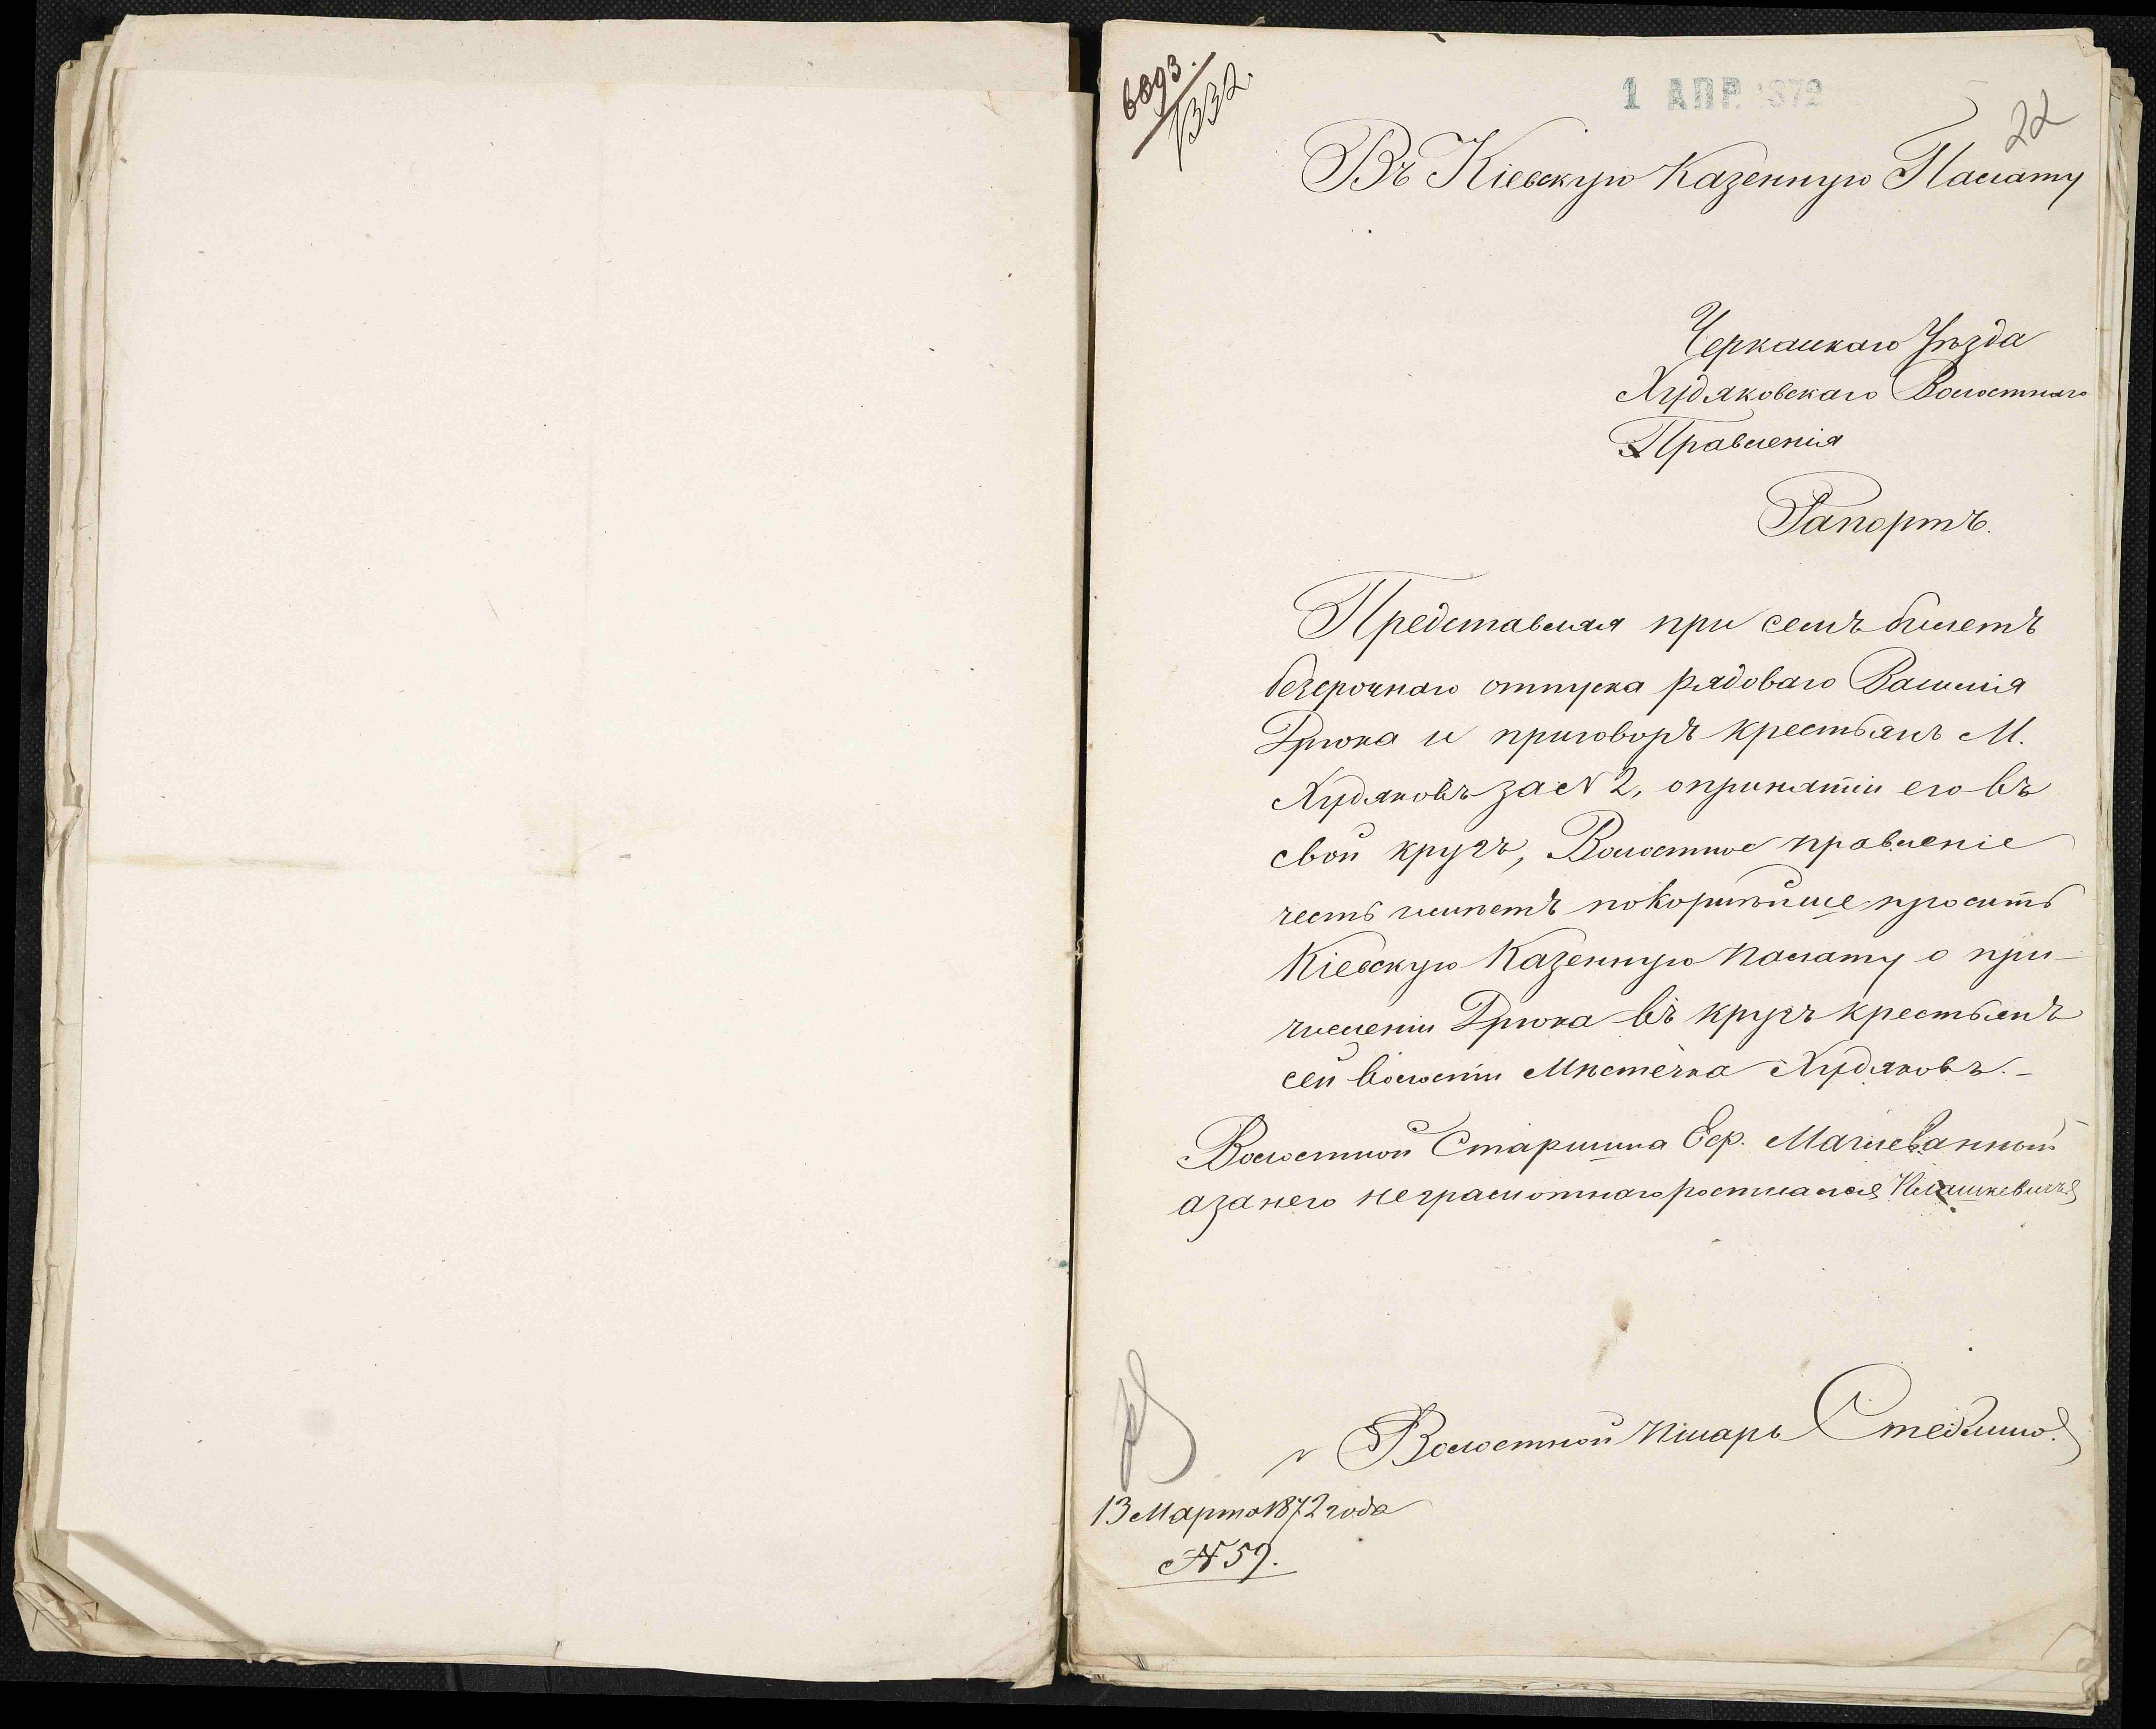 6893.
1332.
1 АПР. 1872
22
Въ Кіевскую Казенную Палату
Черкаскаго Уѣзда
Худяковскаго Волостнаго
Правленія
Рапортъ.
Представляя при семъ билетъ
безсрочнаго отпуска рядоваго Василія
Грюка и приговоръ крестьянъ М.
Худяковъ за N 2, о принятіи его въ
свой кругъ, Волостное правленіе
честь имѣетъ покорнѣйше просить
Кіевскую Казенную Палату о при-
численіи Грюка въ кругъ крестьянъ
сей волости Мѣстечка Худяковъ.-
Волостной Старшина Еф.
а за него неграмотнаго
Волостной Писарь
13 Марта 1872 года
N 59.